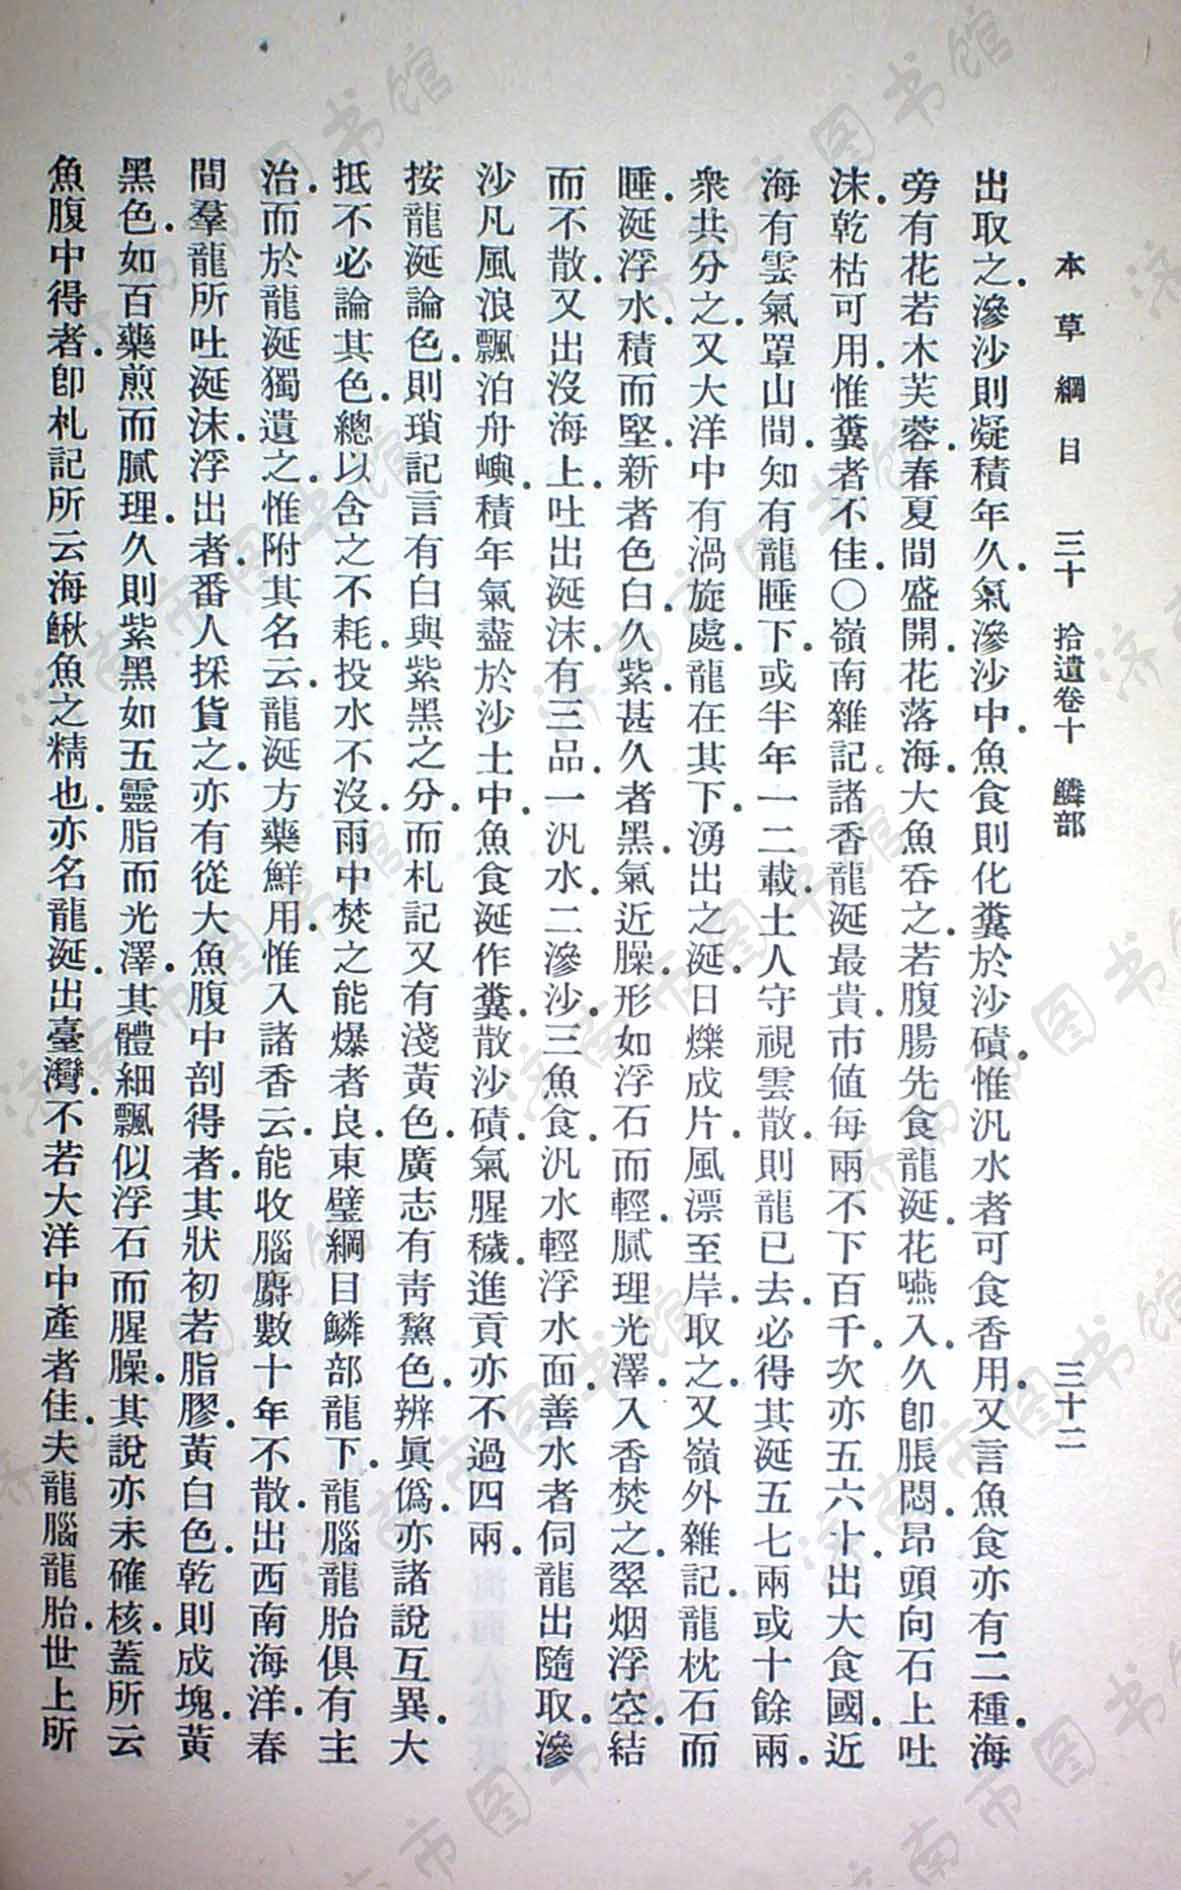 本草綱目 三十 拾遺卷十 鱗部 三十二
出取之．滲沙則凝積年久．氣滲沙中．魚食則化糞於沙磧．惟汎水者可食香用．又言魚食亦有二種．海
旁有花若木芙蓉．春夏間盛開．花落海．大魚呑之．若腹腸先食龍涎．花嚥入．久卽脹悶．昂頭向石上吐
沫．乾枯可用．惟糞者不佳．○嶺南雜記．諸香龍涎最貴．市值每兩不下百千．次亦五六十．出大食國．近
海有雲氣罩山間．知有龍睡下．或半年一二載．土人守視雲散．則龍已去．必得其涎五七兩或十餘兩．
衆共分之．又大洋中有渦旋處．龍在其下．湧出之涎．日爍成片．風漂至岸．取之．又嶺外雜記．龍枕石而
睡．涎浮水．積而堅．新者色白．久紫．甚久者黑．氣近臊．形如浮石而輕．膩理光澤．入香焚之．翠烟浮空．結
而不散．又出沒海上．吐出涎沫．有三品．一汎水．二滲沙．三魚食．汎水輕浮水面．善水者伺龍出隨取．滲
沙凡風浪飄泊舟嶼．積年氣盡於沙土中．魚食涎作糞．散沙磧．氣腥穢．進貢亦不過四兩．
按龍涎論色．則瑣記言有白與紫黑之分．而札記又有淺黃色．廣志有靑黧色．辨眞僞．亦諸說互異．大
抵不必論其色．總以含之不耗．投水不沒．雨中焚之能爆者良．東璧綱目鱗部龍下．龍腦龍胎俱有主
治．而於龍涎獨遺之．惟附其名云．龍涎方藥鮮用．惟入諸香云．能收腦麝數十年不散．出西南海洋．春
間羣龍所吐涎沫．浮出者．番人採貨之．亦有從大魚腹中剖得者．其狀初若脂膠．黃白色．乾則成塊．黃
黑色．如百藥煎而膩理．久則紫黑如五靈脂而光澤．其體細飄似浮石而腥臊．其說亦未確核．蓋所云
魚腹中得者．卽札記所云海鰍魚之精也．亦名龍涎．出臺灣．不若大洋中產者佳．夫龍腦龍胎．世上所